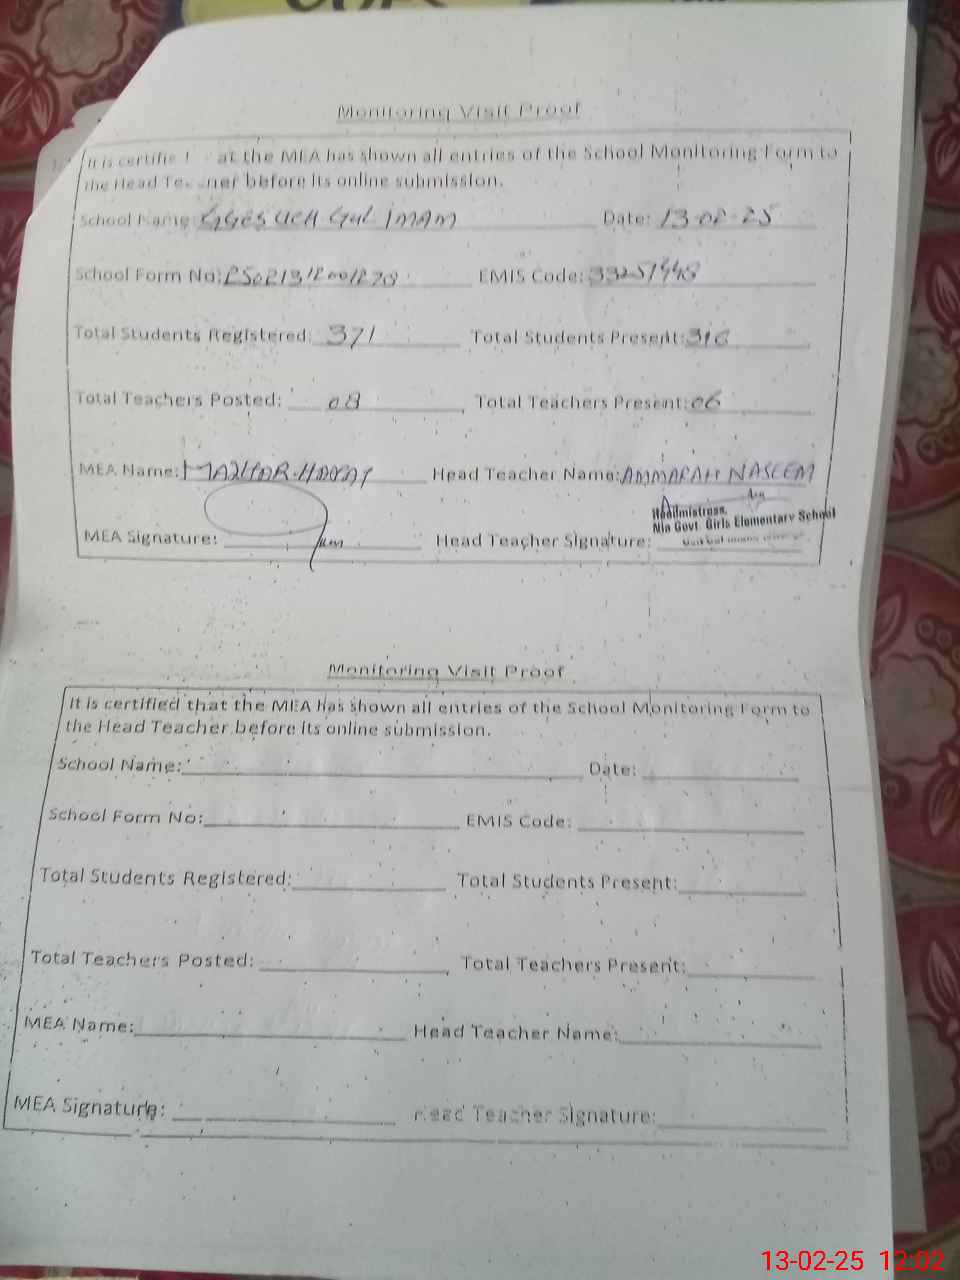 Monitoring Visit Proof
It is certifie at the MEA has shown all entries of the School Monitoring Form to
the Head Teacher before its online submission.
School Name: GGES UCH Gul IMAM Date: 13-02-25
School Form No: EMIS Code: 33251448
Total Students Registered: 371 Total Students Present: 310
Total Teachers Posted: 08, Total Teachers Present: 06
MEA Name: MAZHAR HAYAT Head Teacher Name: AMMARAH NASEEM
Headmistress,
Govt Girls Elementary School
MEA Signature: Head Teacher Signature:
Monitoring Visit Proof
It is certified that the MEA has shown all entries of the School Monitoring Form to
the Head Teacher before its online submission.
School Name: Date:
School Form No: EMIS Code:
Total Students Registered: Total Students Present:
Total Teachers Posted: , Total Teachers Present:
MEA Name: Head Teacher Name:
MEA Signature: Head Teacher Signature:
13-02-25 12:02